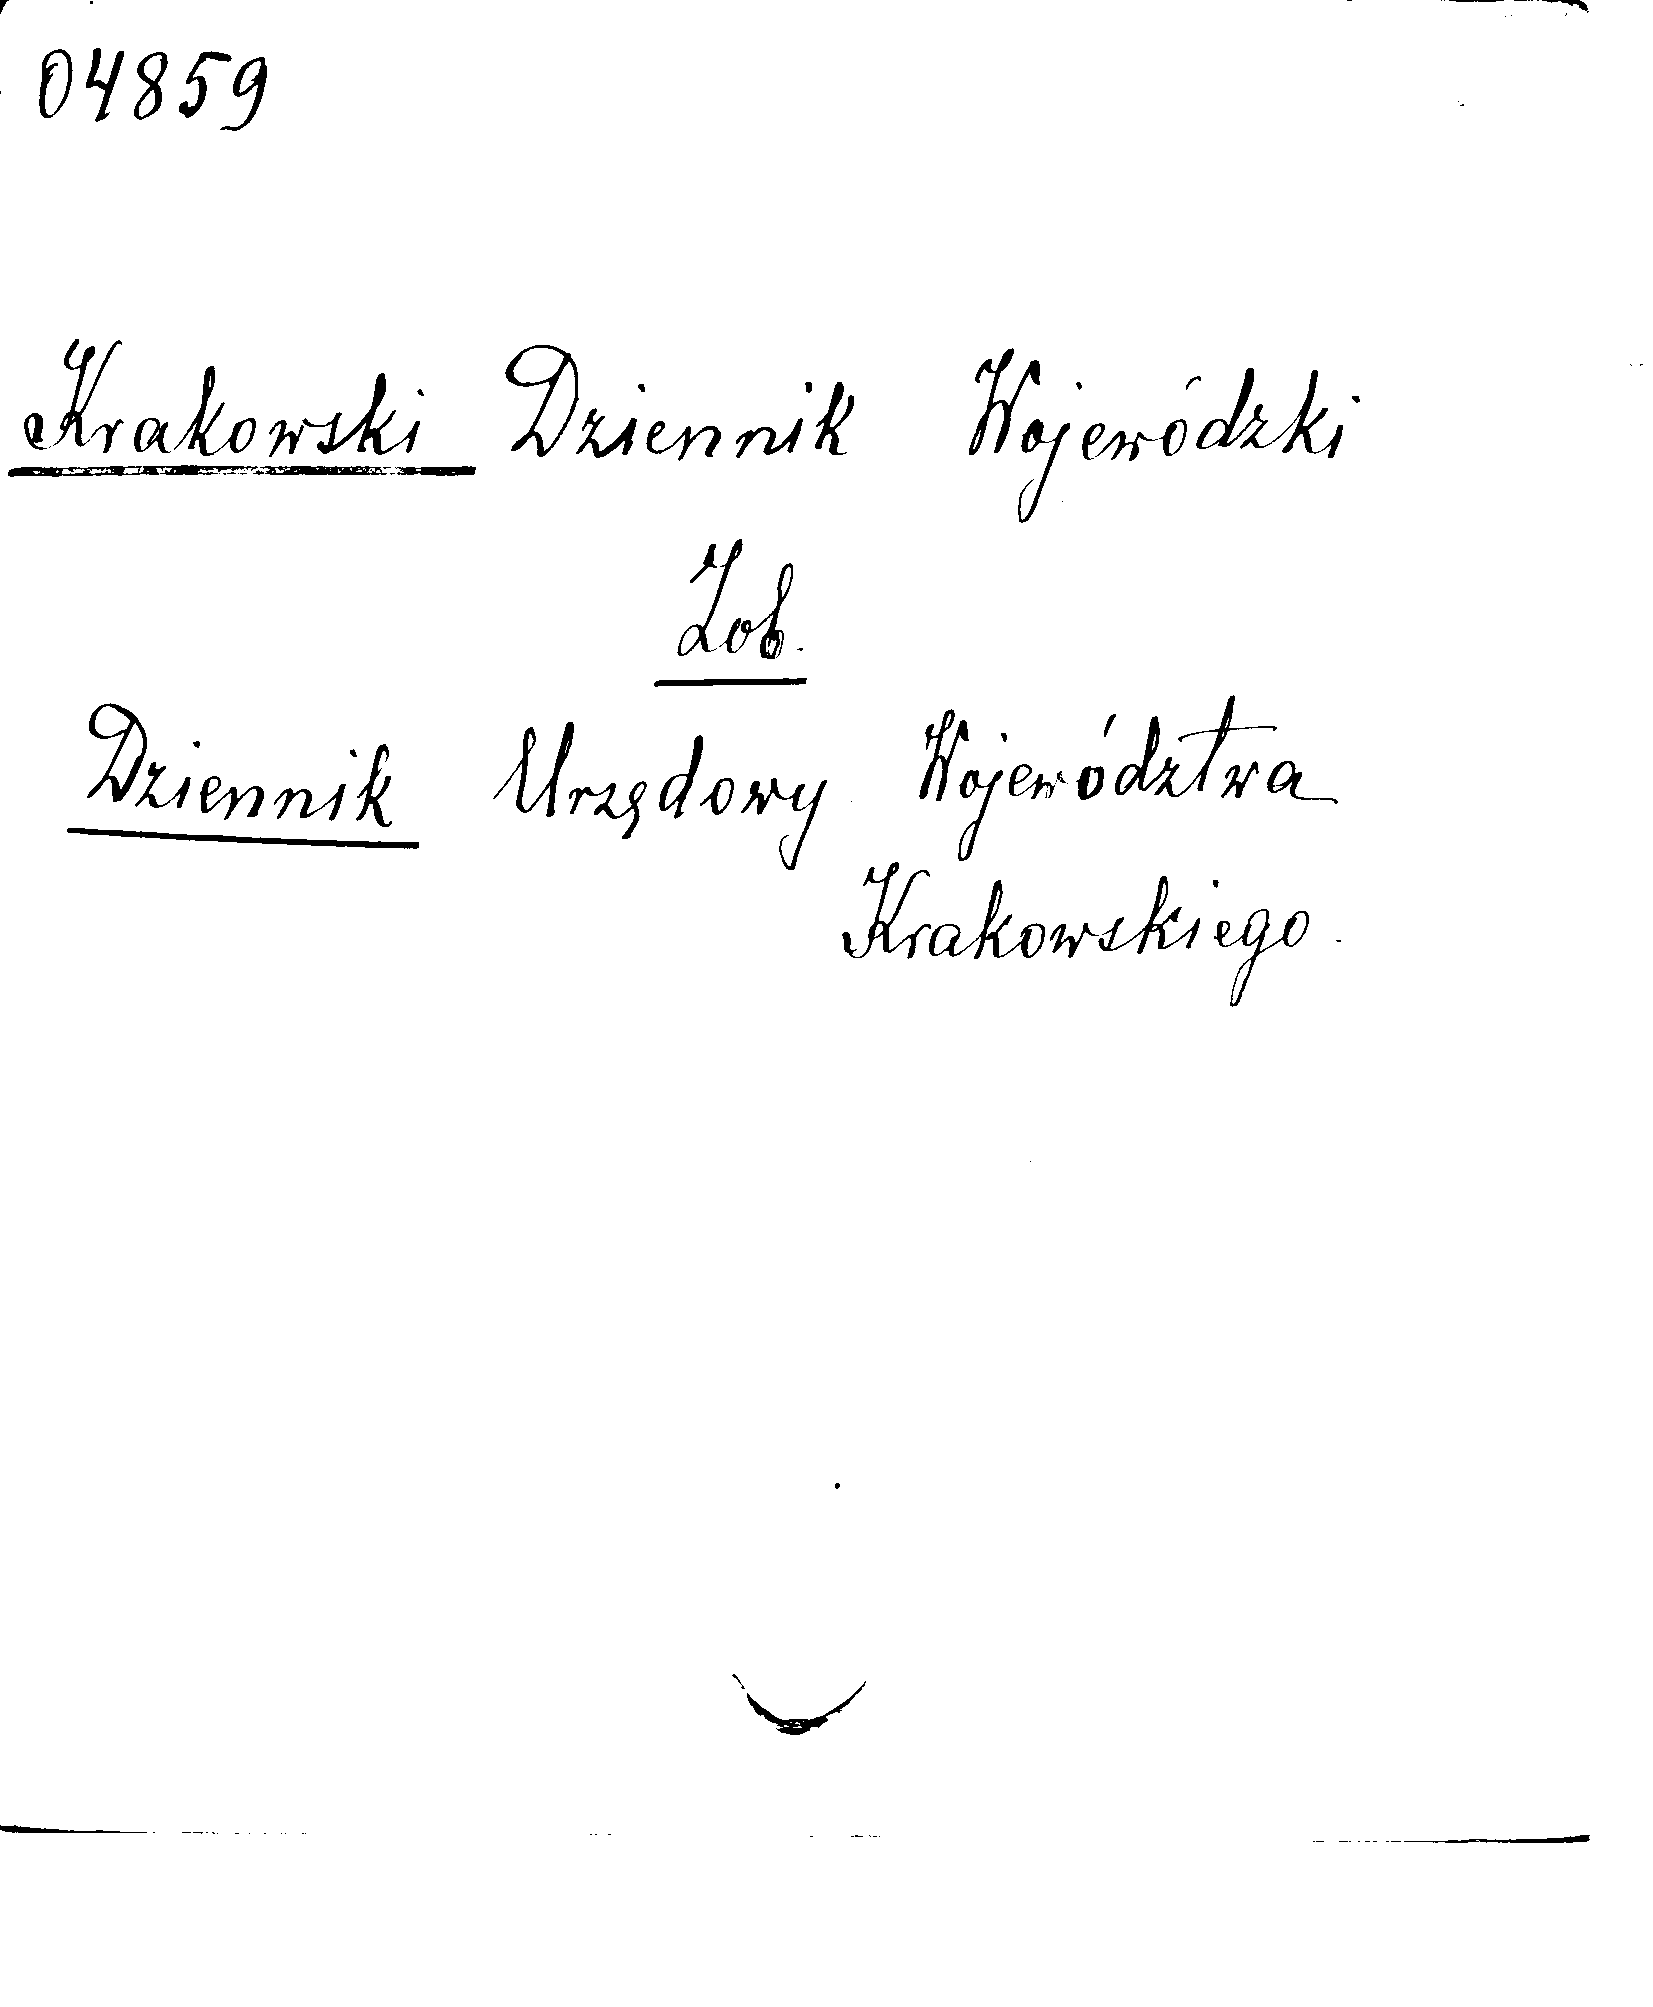 04859
Krakowski Dziennik Wojewódzki
Zob.
Dziennik Urzędowy Województwa
Krakowskiego.